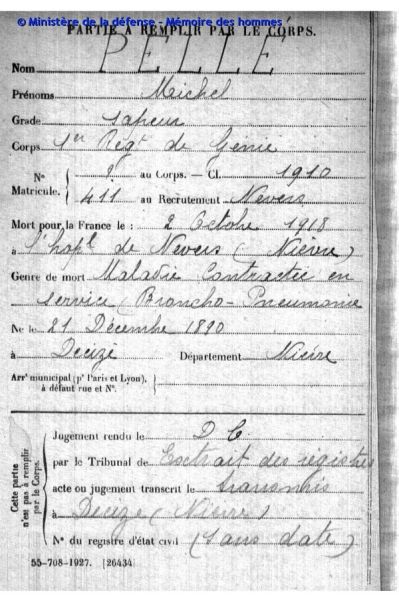 © Ministère de la défense - Mémoire des hommes
PARTIE À REMPLIR PAR LE CORPS.
Nom PELLÉ
Prénoms Michel
Grade sapeur
Corps 1er Régt de Génie
N° Matricule. { au Corps. — Cl. 1910
411 au Recrutement Nevers
Mort pour la France le : 2 Octobre 1918
à l'hopl de Nevers (Nièvre)
Genre de mort Maladie Contractée en
service (Broncho-Pneumonie
Né le 21 Décembre 1890
à Decize Département Nièvre
Arrt municipal (pr Paris et Lyon),
à défaut rue et N°.
Cette partie n'est pas à remplir par le Corps.
Jugement rendu le D C
par le Tribunal de Extrait des régistres
acte ou jugement transcrit le transmis
à Decize (Nièvre)
N° du registre d'état civil (sans date)
55-708-1927. [26434]